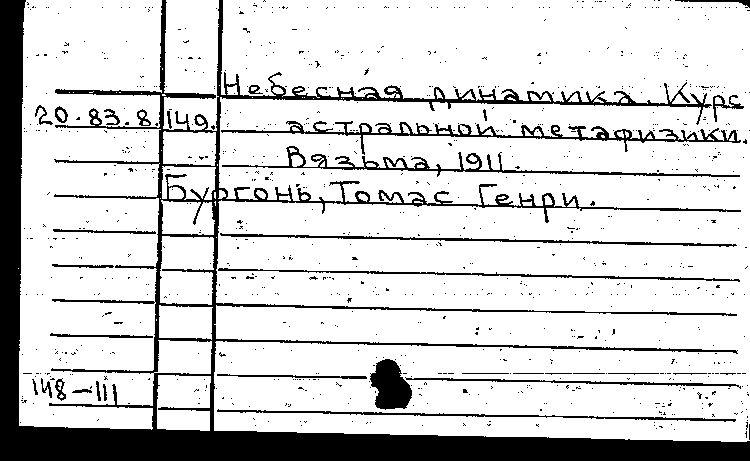 Небесная динамика. Курс
20.83.8. 149. астральной метафизики.
Вязьма, 1911.
Бургонь, Томас Генри.
148-111